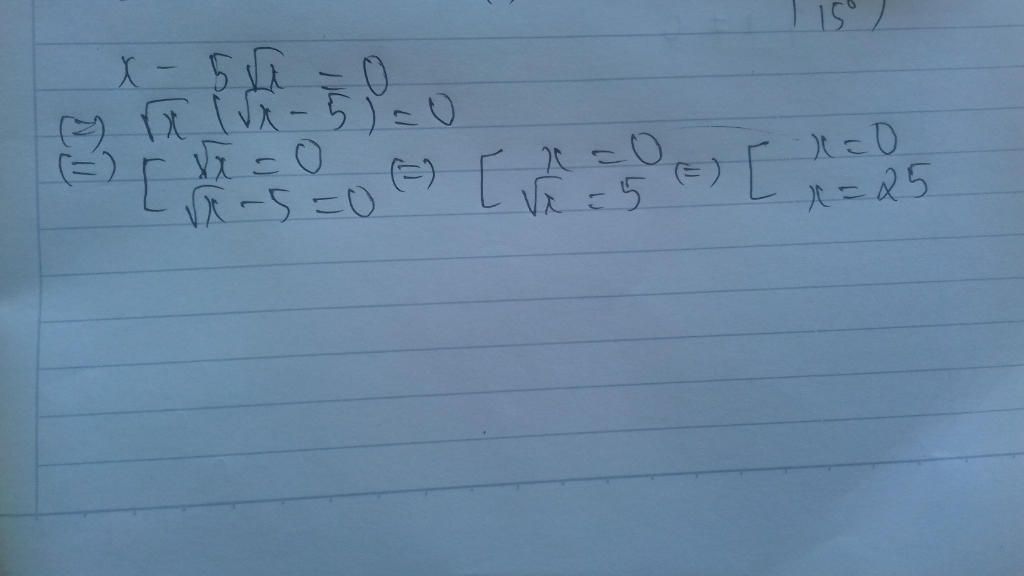 15°)
x - 5√x = 0
(=) √x (√x - 5) = 0
(=) [ √x = 0 (=) [ x = 0 (=) [ x = 0
√x - 5 = 0 √x = 5 x = 25